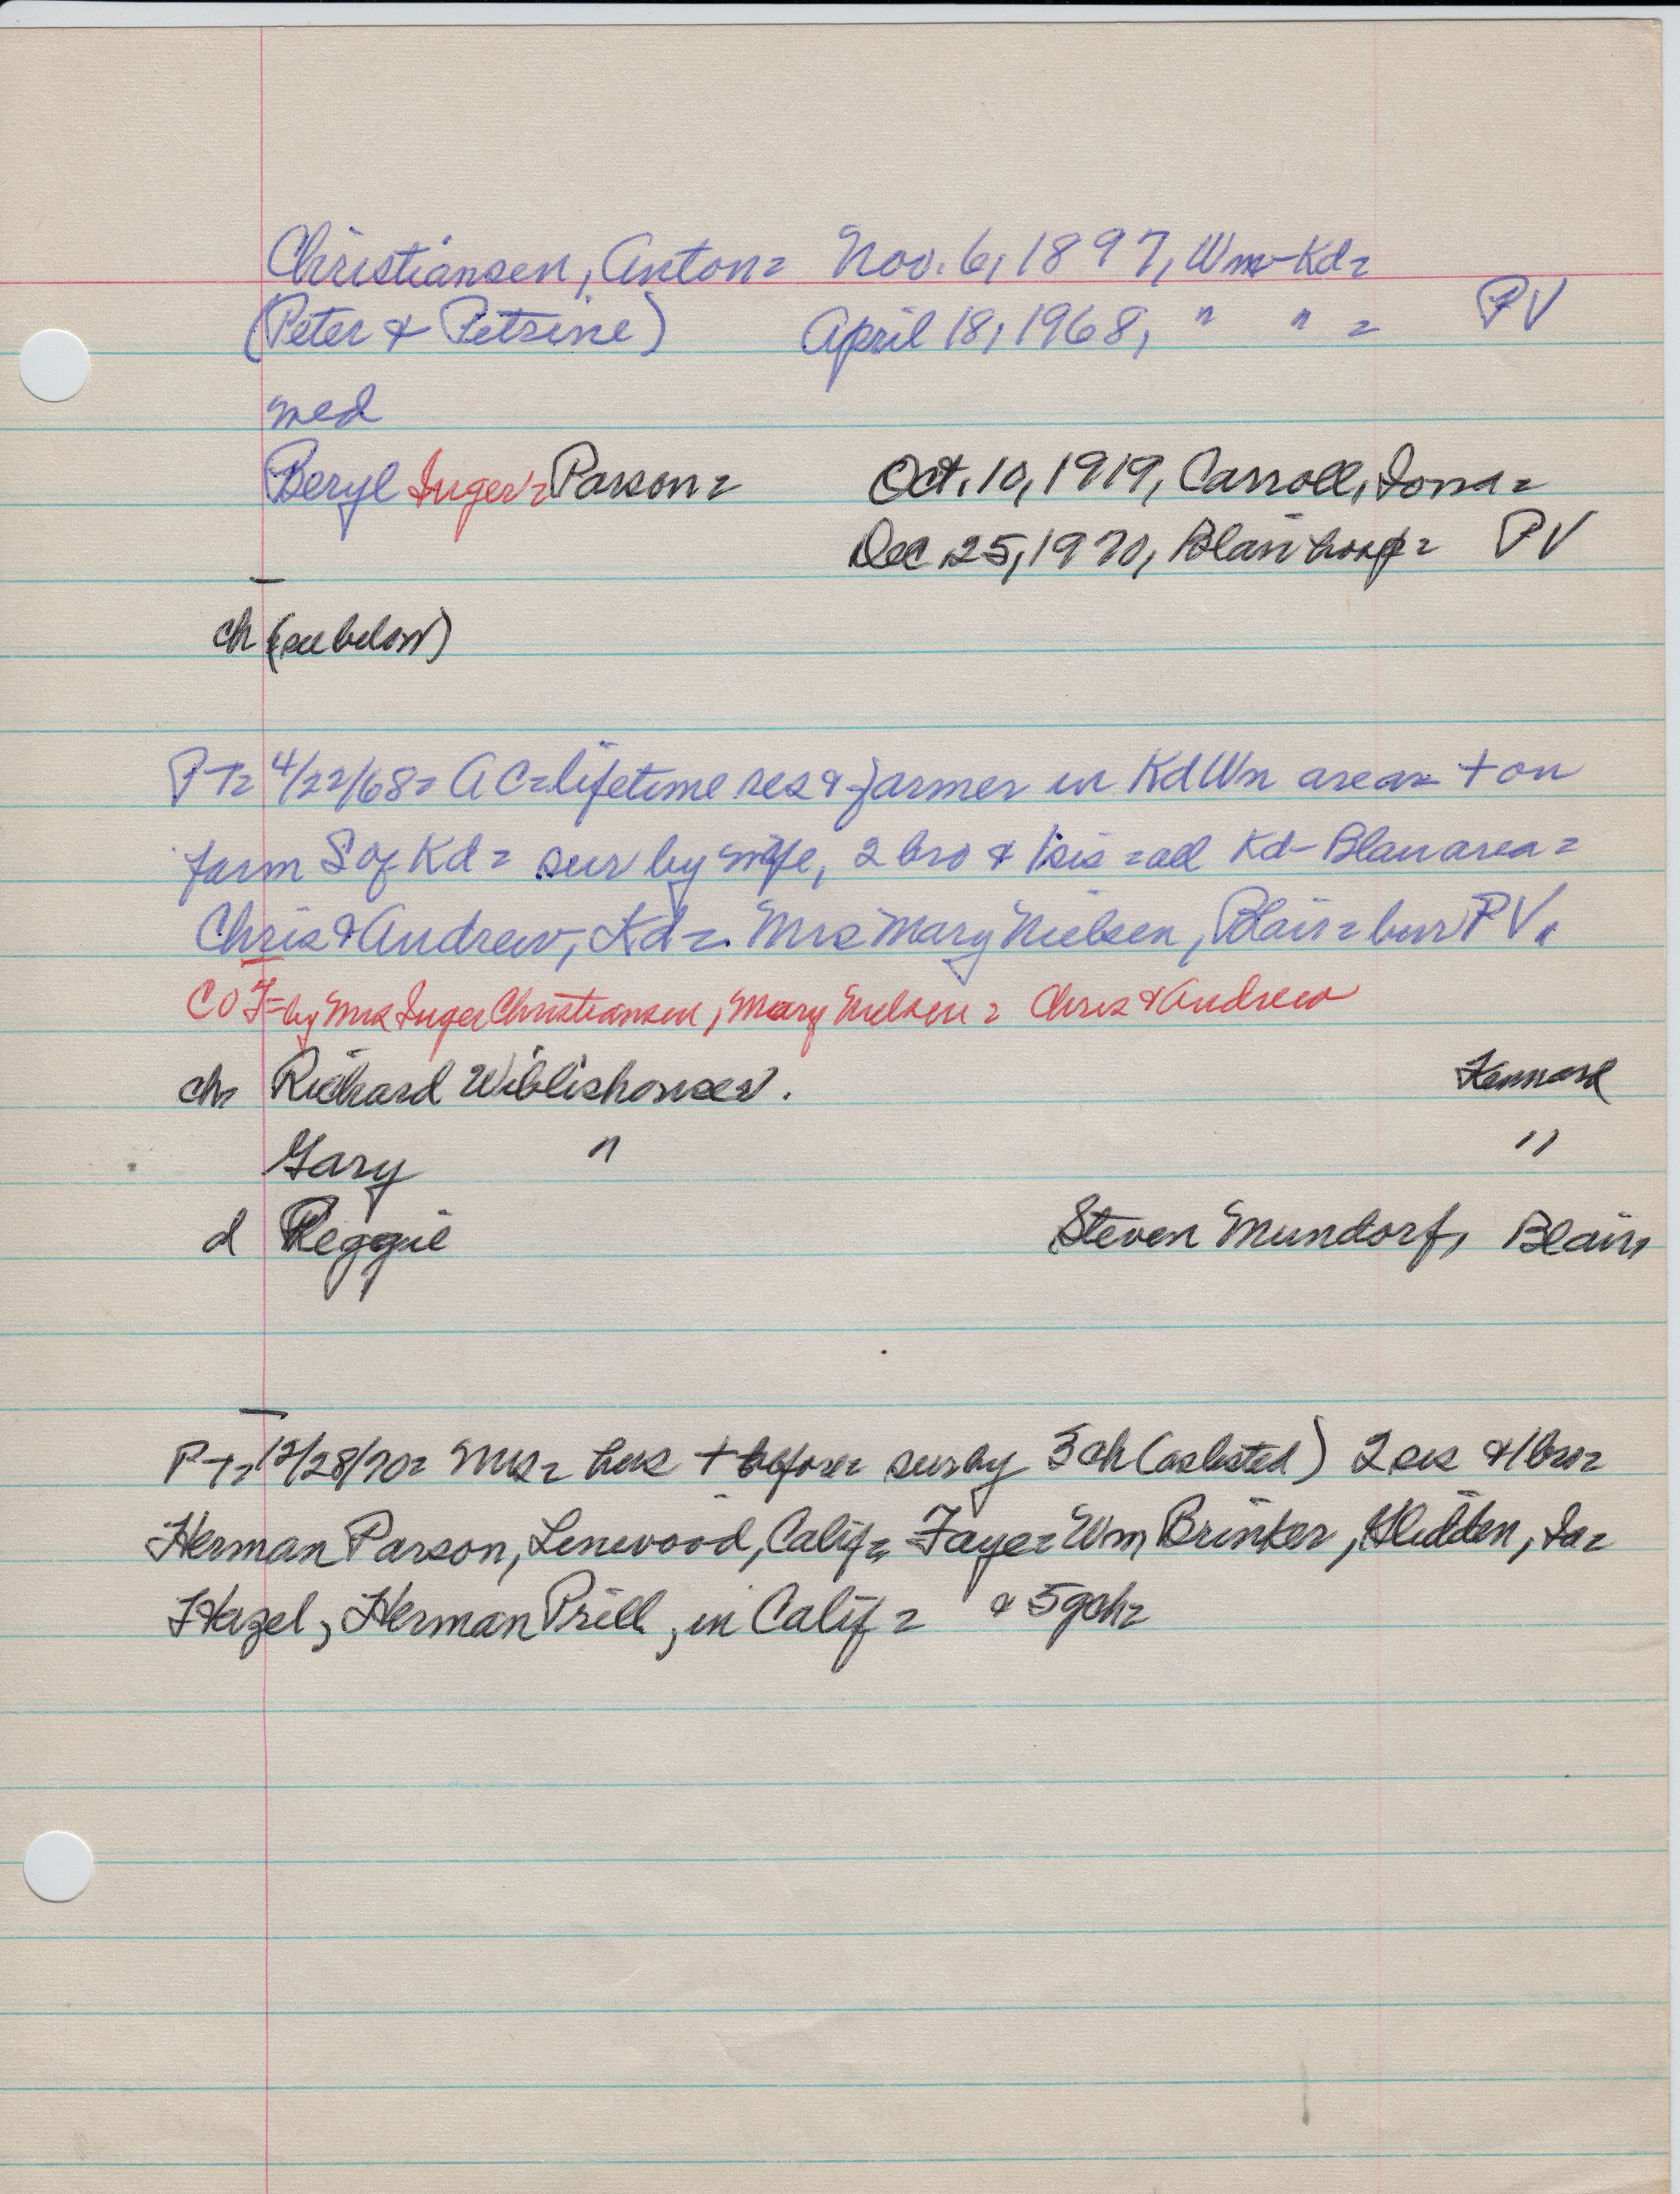 Christiansen, Anton= Nov. 6, 1897, Wm-Kd=
(Peter & Petrine) April 18, 1968, " " = PV
med
Beryl Inger= Parson= Oct. 10, 1919, Carroll, Iowa=
Dec 25, 1970, Blair hosp= PV
ch (see below)
P-T= 4/22/68= A C=lifetime res & farmer in Kd Wn area= + on
farm S of Kd= sur by wife, 2 bro & 1 sis=all Kd-Blair area=
Chris & Andrew, Kd=. Mrs Mary Nielsen, Blair=bur PV.
C O T=by Mrs Inger Christiansen, Mary Nielsen= Chris & Andrew
ch Richard Wiblishouser. Kennard
Gary " "
d Reggie Steven Mundorf, Blair,
P-T= 12/28/70= Mrs= hus + before= sur by 3 ch (as listed) 2 sis & 1 bro=
Herman Parson, Linwood, Calif= Faye= Wm Brinker, Glidden, Ia=
Hazel, Herman Prill, in Calif= & 5 gch=